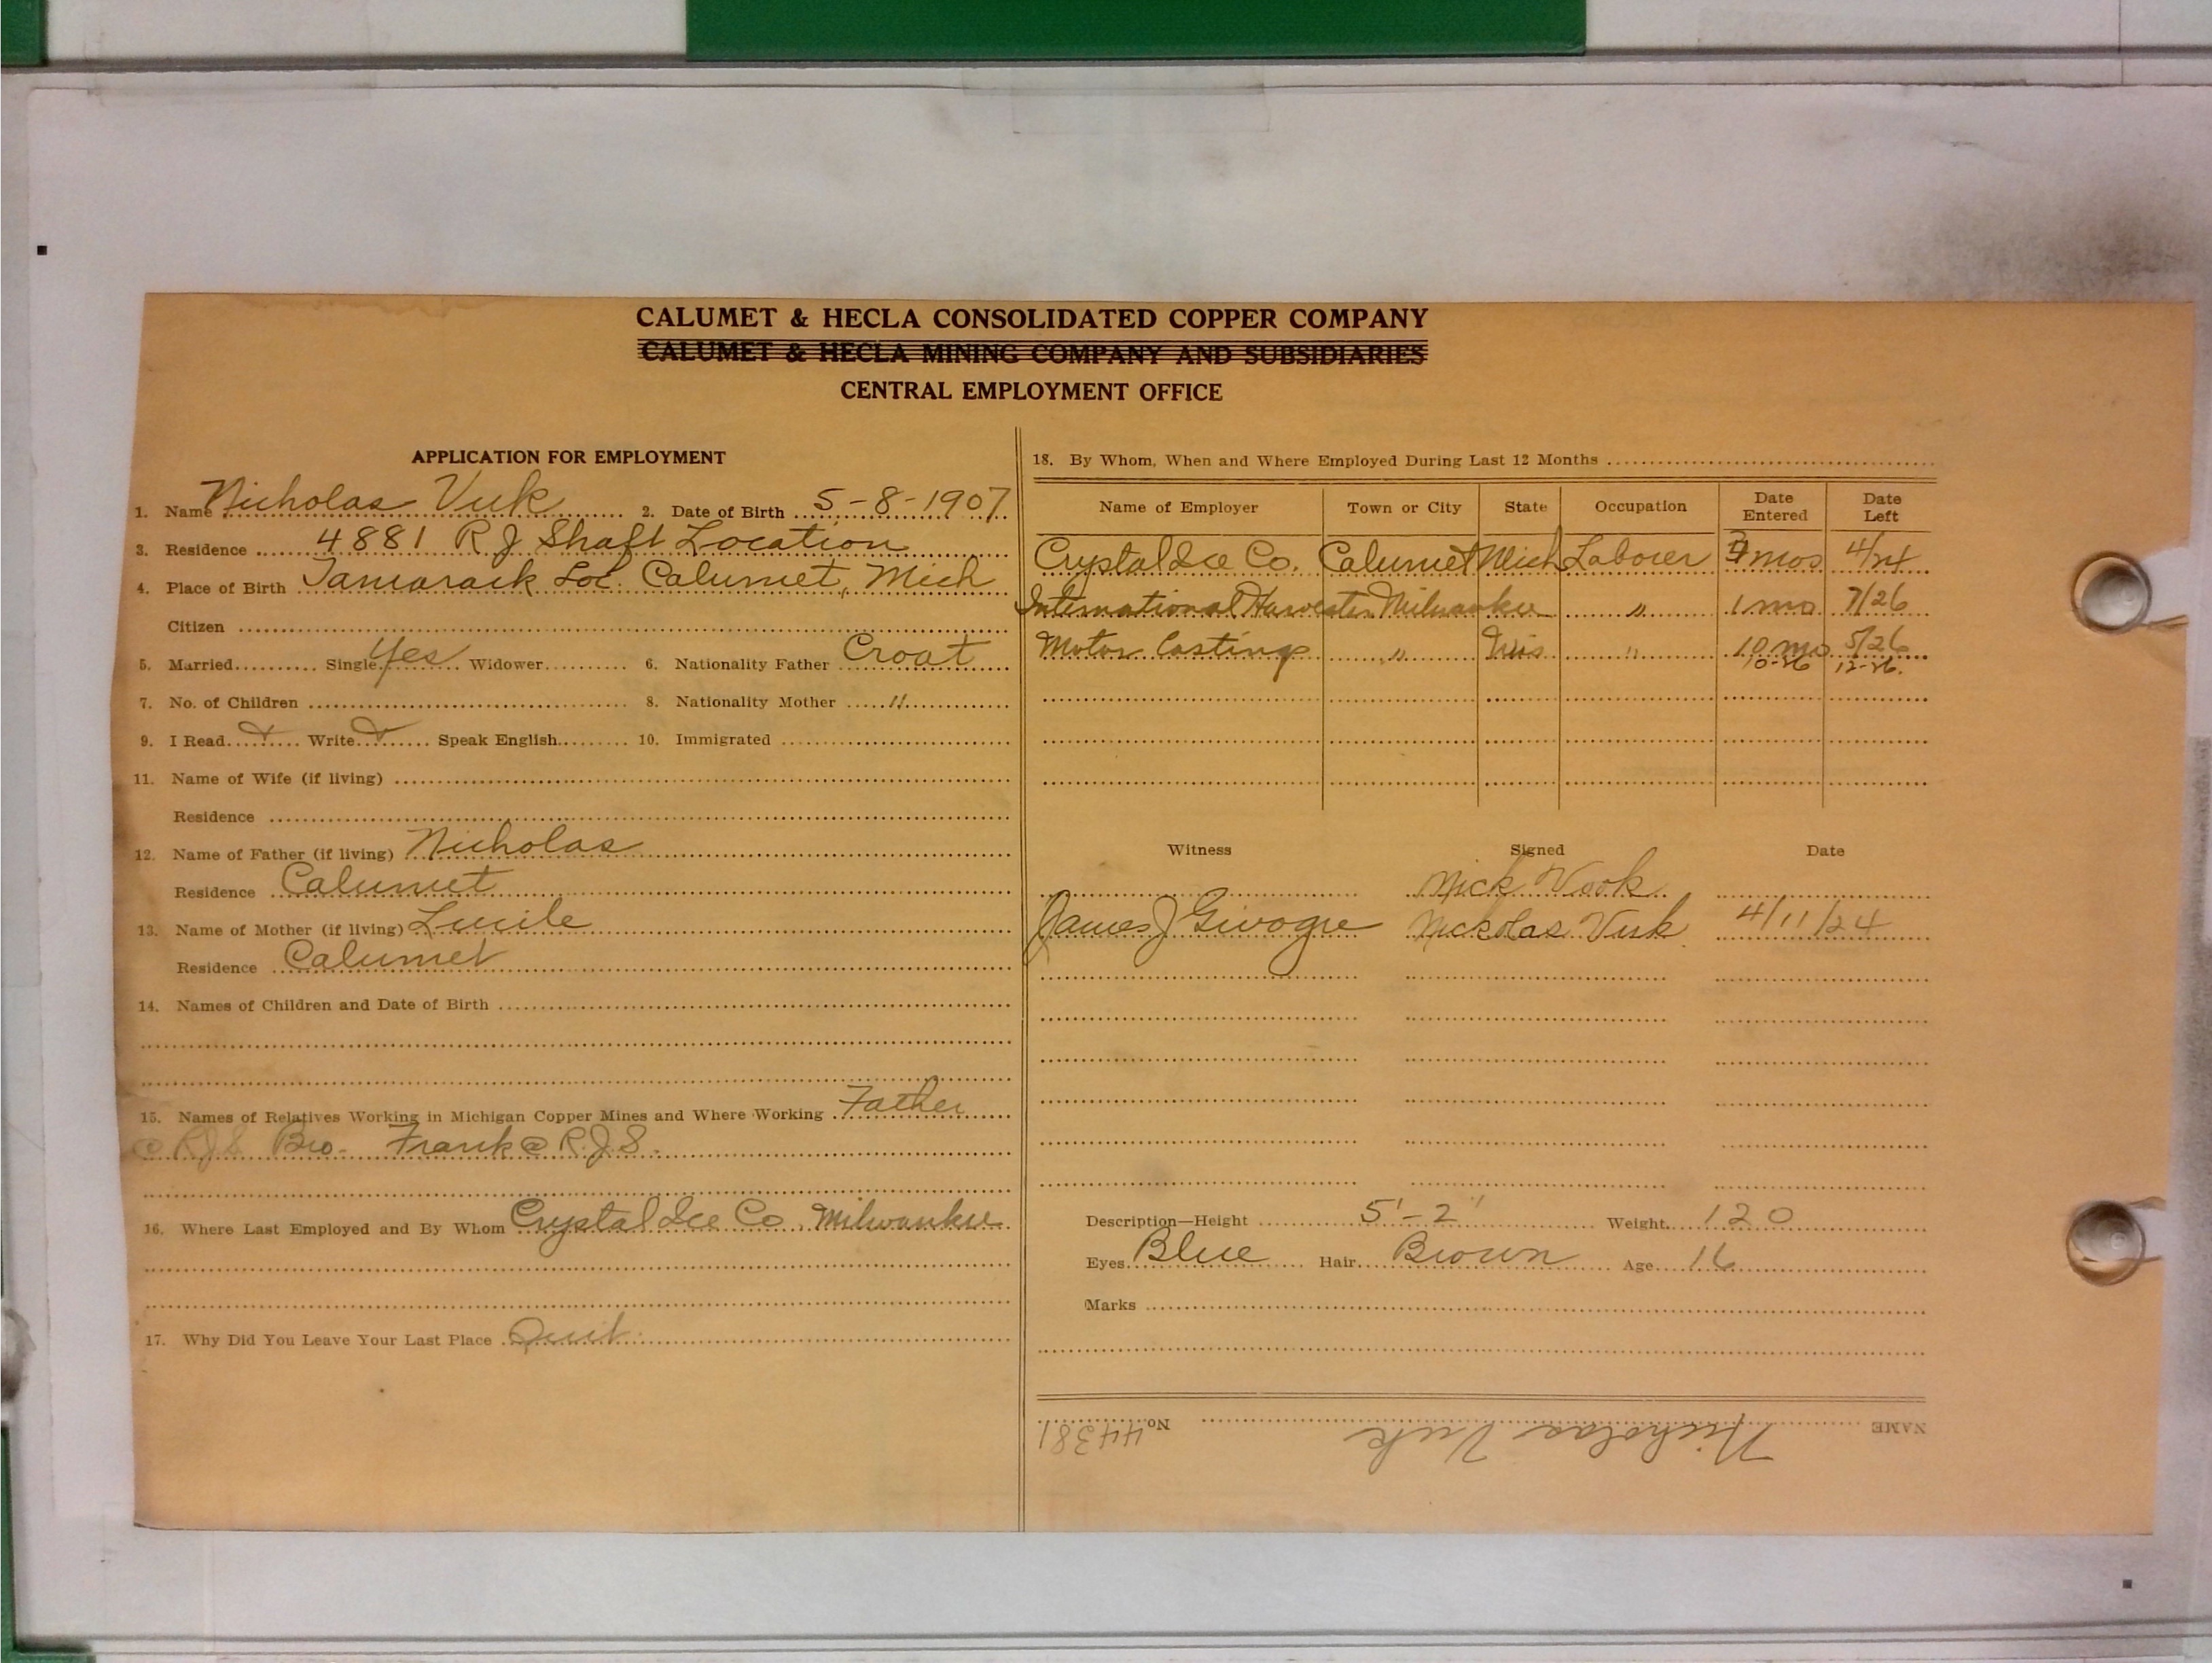 CALUMET & HECLA CONSOLIDATED COPPER COMPANY
CALUMET & HECLA MINING COMPANY AND SUBSIDIARIES
CENTRAL EMPLOYMENT OFFICE
APPLICATION FOR EMPLOYMENT
1. Name Nicholas Vuk 2. Date of Birth 5-8-1907
3. Residence 4881 R J Shaft Location
4. Place of Birth Tamarack Loc. Calumet, Mich
Citizen
5. Married Single Yes Widower 6. Nationality Father Croat
7. No. of Children 8. Nationality Mother "
9. I Read Write Speak English 10. Immigrated
11. Name of Wife (if living)
Residence
12. Name of Father (if living) Nicholas
Residence Calumet
13. Name of Mother (if living) Lucile
Residence Calumet
14. Names of Children and Date of Birth
15. Names of Relatives Working in Michigan Copper Mines and Where Working Father
@ RJS Bro- Frank @ R.J.S.
16. Where Last Employed and By Whom Crystal Ice Co. Milwaukee
17. Why Did You Leave Your Last Place Quit
18. By Whom, When and Where Employed During Last 12 Months
Name of Employer Town or City State Occupation Date Entered Date Left
Crystal Ice Co. Calumet Mich Laborer mos 4/24
International Harvester Milwaukee " 1 mo 7/26
Motor Castings " Wis " 10 mo 5/26
10-26 12-26.
Witness Signed Date
Nick Vook
James J Givogre Nickolas Vuk 4/11/24
Description—Height 5'-2" Weight 120
Eyes Blue Hair Brown Age 16
Marks
NAME Nicholas Vuk No. 44381